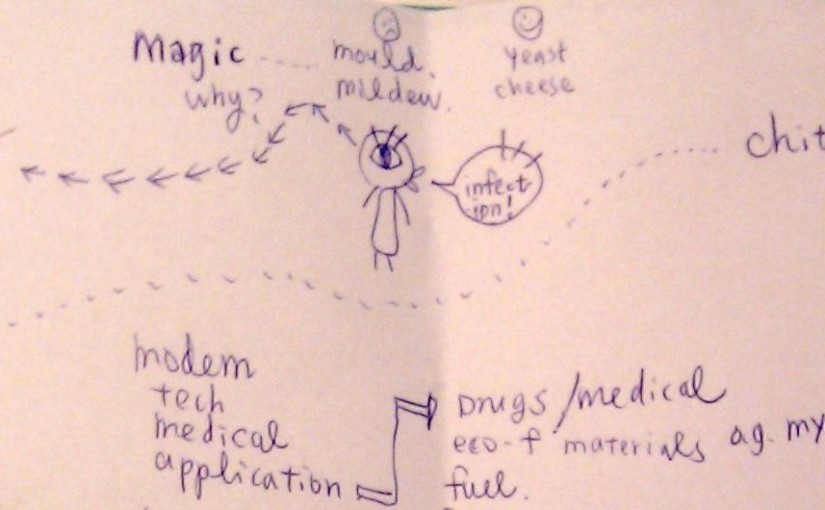 Magic
why?
mould.
mildew.
yeast
cheese
infect-
ion!
chit
modem
tech
medical
application
Drugs/medical
eco-f materials ag. my
fuel.